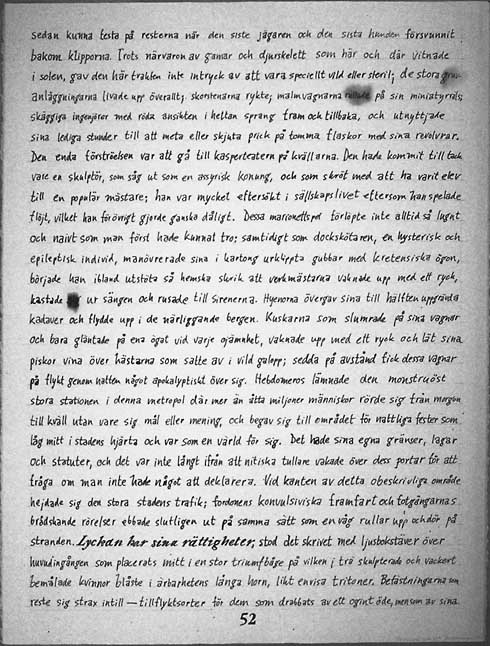 sedan kunna festa på resterna när den siste jägaren och den sista hunden försvunnit
bakom klipporna. Trots närvaron av gamar och djurskelett som här och där vitnade
i solen, gav den här trakten inte intryck av att vara speciellt vild eller steril; de stora gruv-
anläggningarna livade upp överallt; skorstenarna rykte; malmvagnarna rullade på sin miniatyrräls,
skäggiga ingenjörer med röda ansikten i hettan sprang fram och tillbaka, och utnyttjade
sina lediga stunder till att meta eller skjuta prick på tomma flaskor med sina revolvrar.
Den enda förströelsen var att gå till kasperteatern på kvällarna. Den hade kommit till tack
vare en skulptör, som såg ut som en assyrisk konung, och som skröt med att ha varit elev
till en populär mästare; han var mycket eftersökt i sällskapslivet eftersom han spelade
flöjt, vilket han förövrigt gjorde ganska dåligt. Dessa marionettspel förlöpte inte alltid så lugnt
och naivt som man först hade kunnat tro; samtidigt som dockskötaren, en hysterisk och
epileptisk individ, manövrerade sina i kartong urklippta gubbar med kretensiska ögon,
började han ibland utstöta så hemska skrik att verkmästarna vaknade upp med ett ryck,
kastade sig ur sängen och rusade till sirenerna. Hyenorna övergav sina till hälften uppgrävda
kadaver och flydde upp i de närliggande bergen. Kuskarna som slumrade på sina vagnar
och bara gläntade på ena ögat vid varje ojämnhet, vaknade upp med ett ryck och lät sina
piskor vina över hästarna som satte av i vild galopp; sedda på avstånd fick dessa vagnar
på flykt genom natten något apokalyptiskt över sig. Hebdomeros lämnade den monstruöst
stora stationen i denna metropol där mer än åtta miljoner människor rörde sig från morgon
till kväll utan vare sig mål eller mening, och begav sig till området för nattliga fester som
låg mitt i stadens hjärta och var som en värld för sig. Det hade sina egna gränser, lagar
och statuter, och det var inte långt ifrån att nitiska tullare vakade över dess portar för att
fråga om man inte hade något att deklarera. Vid kanten av detta obeskrivliga område
hejdade sig den stora stadens trafik; fordonens konvulsiviska framfart och fotgängarnas
brådskande rörelser ebbade slutligen ut på samma sätt som en våg rullar upp och dör på
stranden. Lyckan har sina rättigheter, stod det skrivet med ljusbokstäver över
huvudingången som placerats mitt i en stor triumfbåge på vilken i trä skulpterade och vackert
bemålade kvinnor blåste i ärbarhetens långa horn, likt envisa tritoner. Befästningarna som
reste sig strax intill — tillflyktsorter för dem som drabbats av ett ogint öde, men som av sina
52